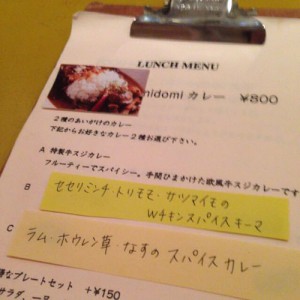 LUNCH MENU
nidomi カレー ¥800
2種のあいがけのカレー
下記からお好きなカレー2種お選び下さい。
A 特製牛スジカレー
フルーティーでスパイシー。手間ひまかけた欧風牛スジカレーです
B セセリミンチ・トリモモ・サツマイモの
Wチキンスパイスキーマ
C ラム・ホウレン草・なすの スパイスカレー
得なプレートセット +¥150
サラダ、